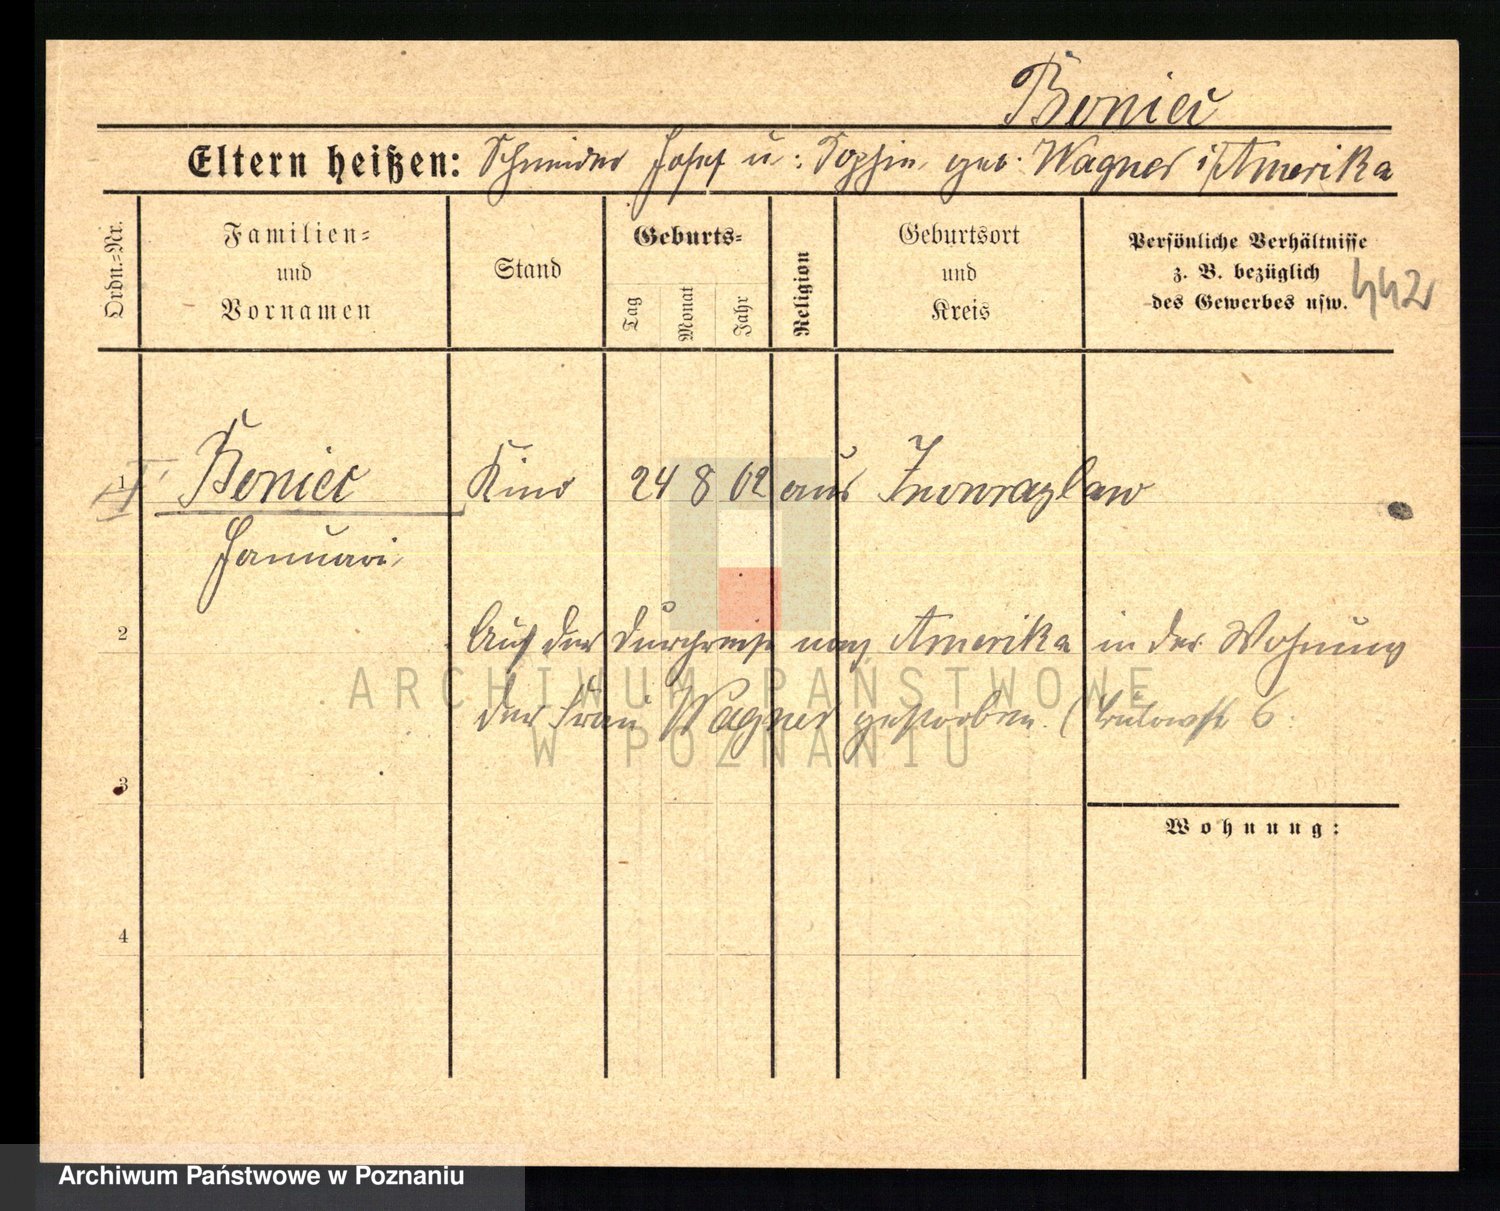 Boniec
Eltern heißen: Schneider Josef u: Sophie geb. Wagner i/Amerika
Ordn.-Nr.
Familien-
und
Vornamen
Stand
Geburts-
Tag
Monat
Jahr
Religion
Geburtsort
und
Kreis
Persönliche Verhältnisse
z. B. bezüglich
des Gewerbes usw.
442
1 Boniec Kind 24 8 02 aus Inowrazlaw
Januari
2 Auf der Durchreise nach Amerika in der Wohnung
der Frau Wagner gestorben. ( 6.
3
Wohnung:
4
ARCHIWUM PAŃSTWOWE
W POZNANIU
Archiwum Państwowe w Poznaniu